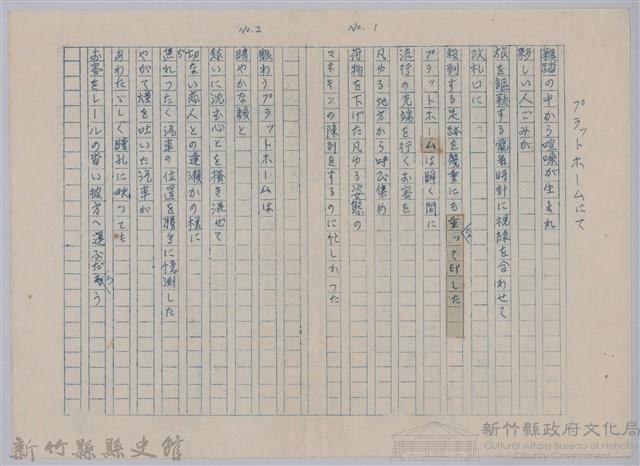 No. 1
プラットホームにて
雑踏の中から喧噪が生まれ
夥しい人ごみが
旅を謳歌する電気時計に視線を合わせて
改札口に
殺到する足跡を幾重にも重って印した
プラットホームは瞬く間に
流行の先端を行くお客を
凡ゆる地方から呼び集め
荷物を下げた凡ゆる姿態の
マネキンの陳列をするのに忙しかった
No. 2
賑わうプラットホームは
晴やかな顔と
愁いに沈む心とを掻き混ぜて
切ない恋人との逢瀬かの様に
遅れつたく汽車の位置を勝手に憶測した
やがて煙を吐いた汽車が
あわたゞしく瞳孔に映っても
お客をレールの碧い彼方へ運ぶだろう
新竹縣縣史館
新竹縣政府文化局
Cultural Affairs Bureau of Hsinchu
County Government